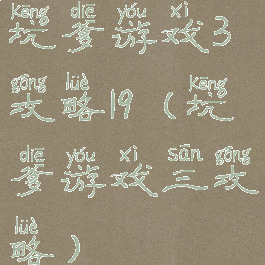 kēng diē yóu xì
坑 爹 游 戏 3
gōng lüè kēng
攻 略 19 （ 坑
diē yóu xì sān gōng
爹 游 戏 三 攻
lüè
略 ）